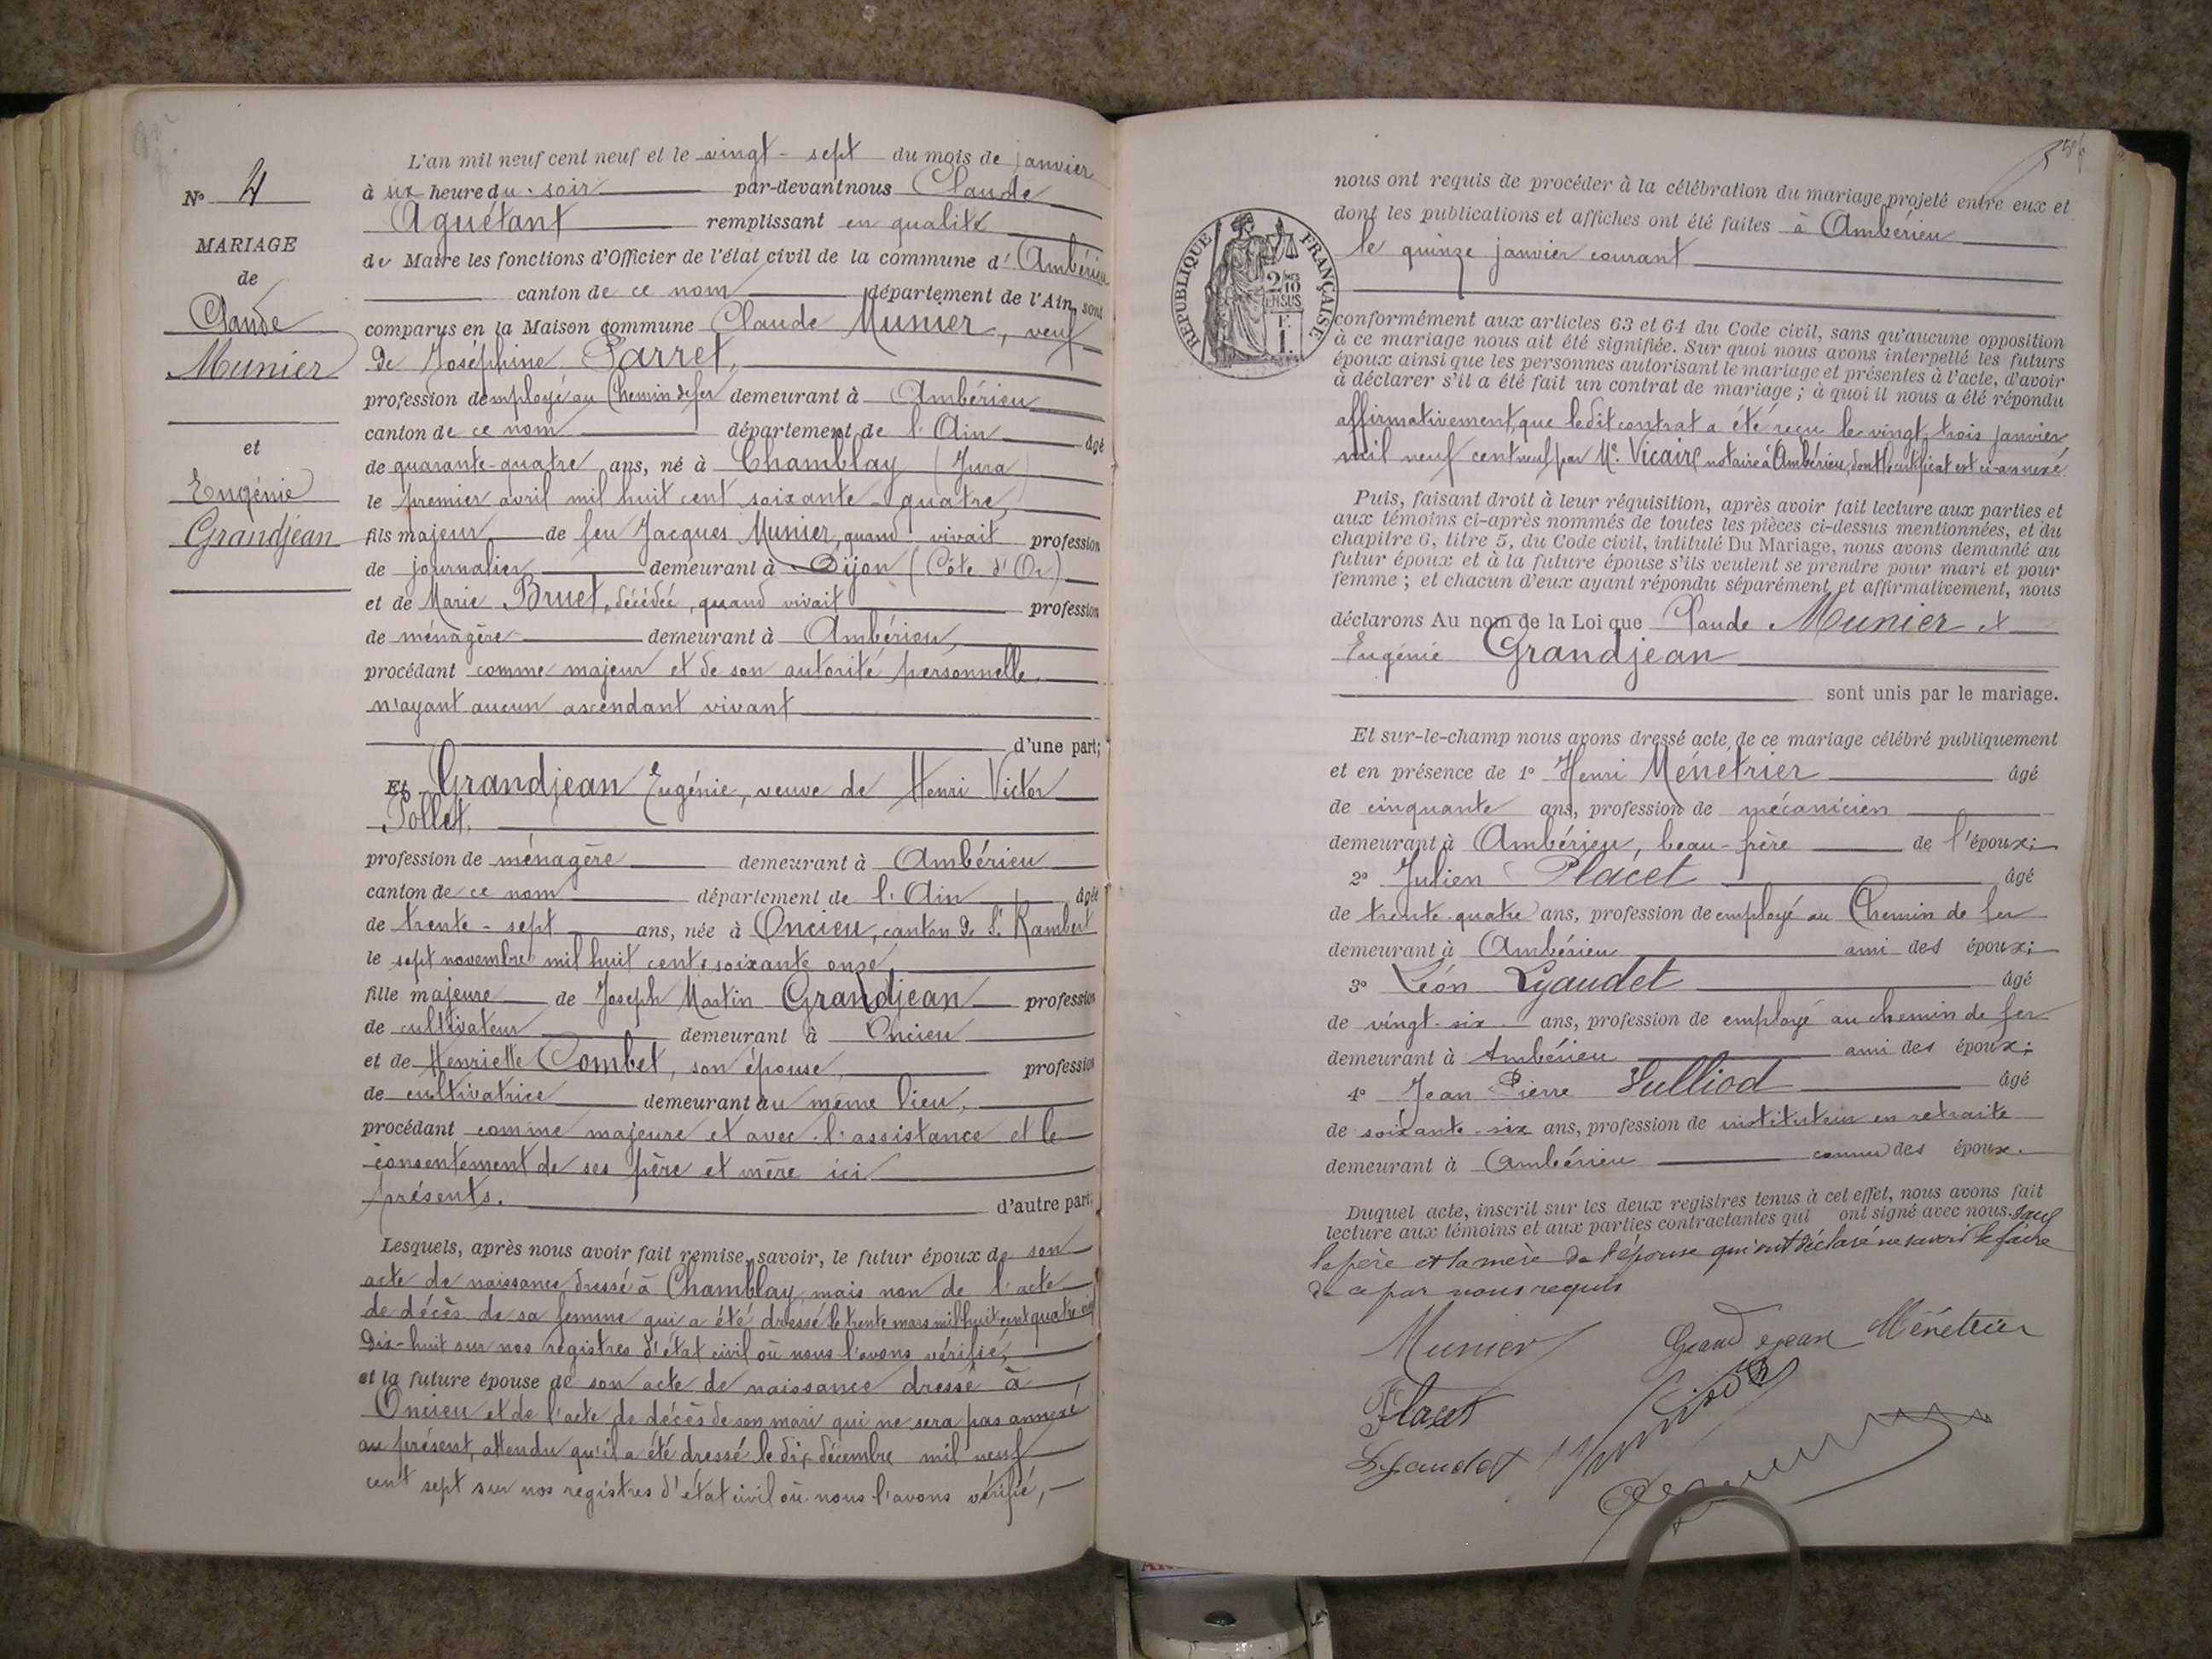 L'an mil neuf cent neuf et le vingt-sept du mois de janvier
à six heure du soir par-devant nous Claude
Aguétant remplissant en qualité
de Maire les fonctions d'Officier de l'état civil de la commune d'Ambérieu
canton de ce nom département de l'Ain, sont
comparus en la Maison commune Claude Munier, veuf
de Joséphine Parret,
profession d'employé au Chemin de fer demeurant à Ambérieu
canton de ce nom département de l'Ain âgé
de quarante-quatre ans, né à Chamblay (Jura)
le premier avril mil huit cent soixante-quatre,
fils majeur de feu Jacques Munier, quand vivait profession
de journalier demeurant à Dijon (Côte d'Or)
et de Marie Bruet, décédée, quand vivait profession
de ménagère demeurant à Ambérieu,
procédant comme majeur et de son autorité personnelle,
n'ayant aucun ascendant vivant
d'une part;
Et Grandjean Eugénie, veuve de Henri Victor
Pollet,
profession de ménagère demeurant à Ambérieu
canton de ce nom département de l'Ain âgée
de trente-sept ans, née à Oncieu, canton de St Rambert
le sept novembre mil huit cent soixante onze,
fille majeure de Joseph Martin Grandjean profession
de cultivateur demeurant à Oncieu
et de Henriette Combet, son épouse, profession
de cultivatrice demeurant au même lieu,
procédant comme majeure et avec l'assistance et le
consentement de ses père et mère ici
présents. d'autre part;
Lesquels, après nous avoir fait remise, savoir, le futur époux de son
acte de naissance dressé à Chamblay, mais non de l'acte
de décès de sa femme qui a été dressé le trente mars mil huit cent quatre-vingt
dix-huit sur nos registres d'état civil où nous l'avons vérifié,
et la future épouse de son acte de naissance dressé à
Oncieu et de l'acte de décès de son mari qui ne sera pas annexé
au présent, attendu qu'il a été dressé le dix décembre mil neuf
cent sept sur nos registres d'état civil où nous l'avons vérifié,
No 4
MARIAGE
de
Claude
Munier
et
Eugénie
Grandjean
nous ont requis de procéder à la célébration du mariage projeté entre eux et
dont les publications et affiches ont été faites à Ambérieu
le quinze janvier courant
RÉPUBLIQUE FRANÇAISE
2/10
EN SUS
F.
1.
conformément aux articles 63 et 64 du Code civil, sans qu'aucune opposition
à ce mariage nous ait été signifiée. Sur quoi nous avons interpellé les futurs
époux ainsi que les personnes autorisant le mariage et présentes à l'acte, d'avoir
à déclarer s'il a été fait un contrat de mariage ; à quoi il nous a été répondu
affirmativement, que ledit contrat a été reçu le vingt-trois janvier
mil neuf cent neuf par Me Vicaire notaire à Ambérieu, dont le certificat est ci-annexé
Puis, faisant droit à leur réquisition, après avoir fait lecture aux parties et
aux témoins ci-après nommés de toutes les pièces ci-dessus mentionnées, et du
chapitre 6, titre 5, du Code civil, intitulé Du Mariage, nous avons demandé au
futur époux et à la future épouse s'ils veulent se prendre pour mari et pour
femme ; et chacun d'eux ayant répondu séparément et affirmativement, nous
déclarons Au nom de la Loi que Claude Munier et
Eugénie Grandjean
sont unis par le mariage.
Et sur-le-champ nous avons dressé acte de ce mariage célébré publiquement
et en présence de 1° Henri Ménetrier âgé
de cinquante ans, profession de mécanicien
demeurant à Ambérieu, beau-frère de l'époux;
2° Julien Placet âgé
de trente-quatre ans, profession de employé au Chemin de fer
demeurant à Ambérieu ami des époux;
3° Léon Lyaudet âgé
de vingt-six ans, profession de employé au chemin de fer
demeurant à Ambérieu ami des époux;
4° Jean Pierre Sulliod âgé
de soixante-six ans, profession de instituteur en retraite
demeurant à Ambérieu connu des époux.
Duquel acte, inscrit sur les deux registres tenus à cet effet, nous avons fait
lecture aux témoins et aux parties contractantes qui ont signé avec nous. sauf
le père et la mère de l'épouse qui ont déclaré ne savoir le faire
de ce par nous requis
Munier Grandjean Ménétrier
Placet
Lyaudet